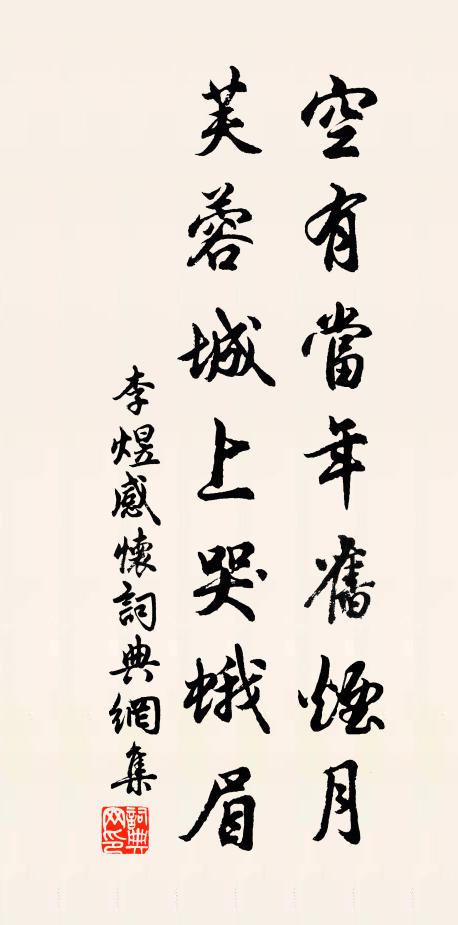 空有當年舊煙月
芙蓉城上哭蛾眉
李煜感懷詞典網集
詞典網印